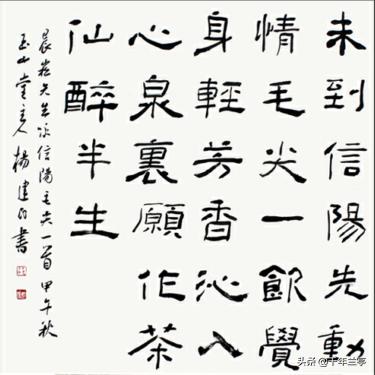 未到信陽先動
情毛尖一飲覺
身輕芳香沁入
心泉裏願作茶
仙醉半生
晨崧先生咏信陽毛尖一首 甲午秋
玉山堂主人楊建書
头条@千年兰亭